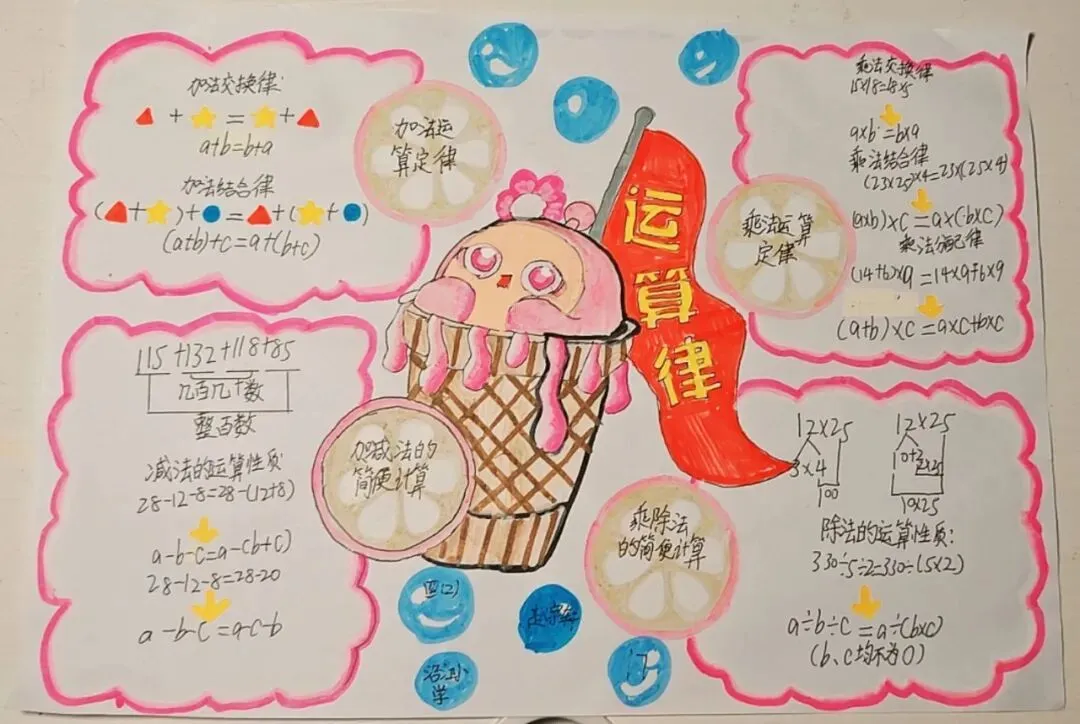 加法交换律:
+ = +
a+b=b+a
加法结合律
( + )+ = +( + )
(a+b)+c=a+(b+c)
加法运
算定律
运算律
乘法交换律
a×b=b×a
乘法结合律
(23×25)×4=23×(25×4)
(a×b)×c=a×(b×c)
乘法分配律
(14+6)×9=14×9+6×9
(a+b)×c=a×c+b×c
乘法运算
定律
115+132+118+85
几百几十数
整百数
减法的运算性质:
28-12-8=28-(12+8)
a-b-c=a-(b+c)
28-12-8=28-20
a-b-c=a-c-b
加减法的
简便计算
乘除法
的简便计算
12×25
3×4
100
12×25
10+2
2×25
10×25
除法的运算性质:
330÷5÷2=330÷(5×2)
a÷b÷c=a÷(b×c)
(b、c均不为0)
四(2)
小
学